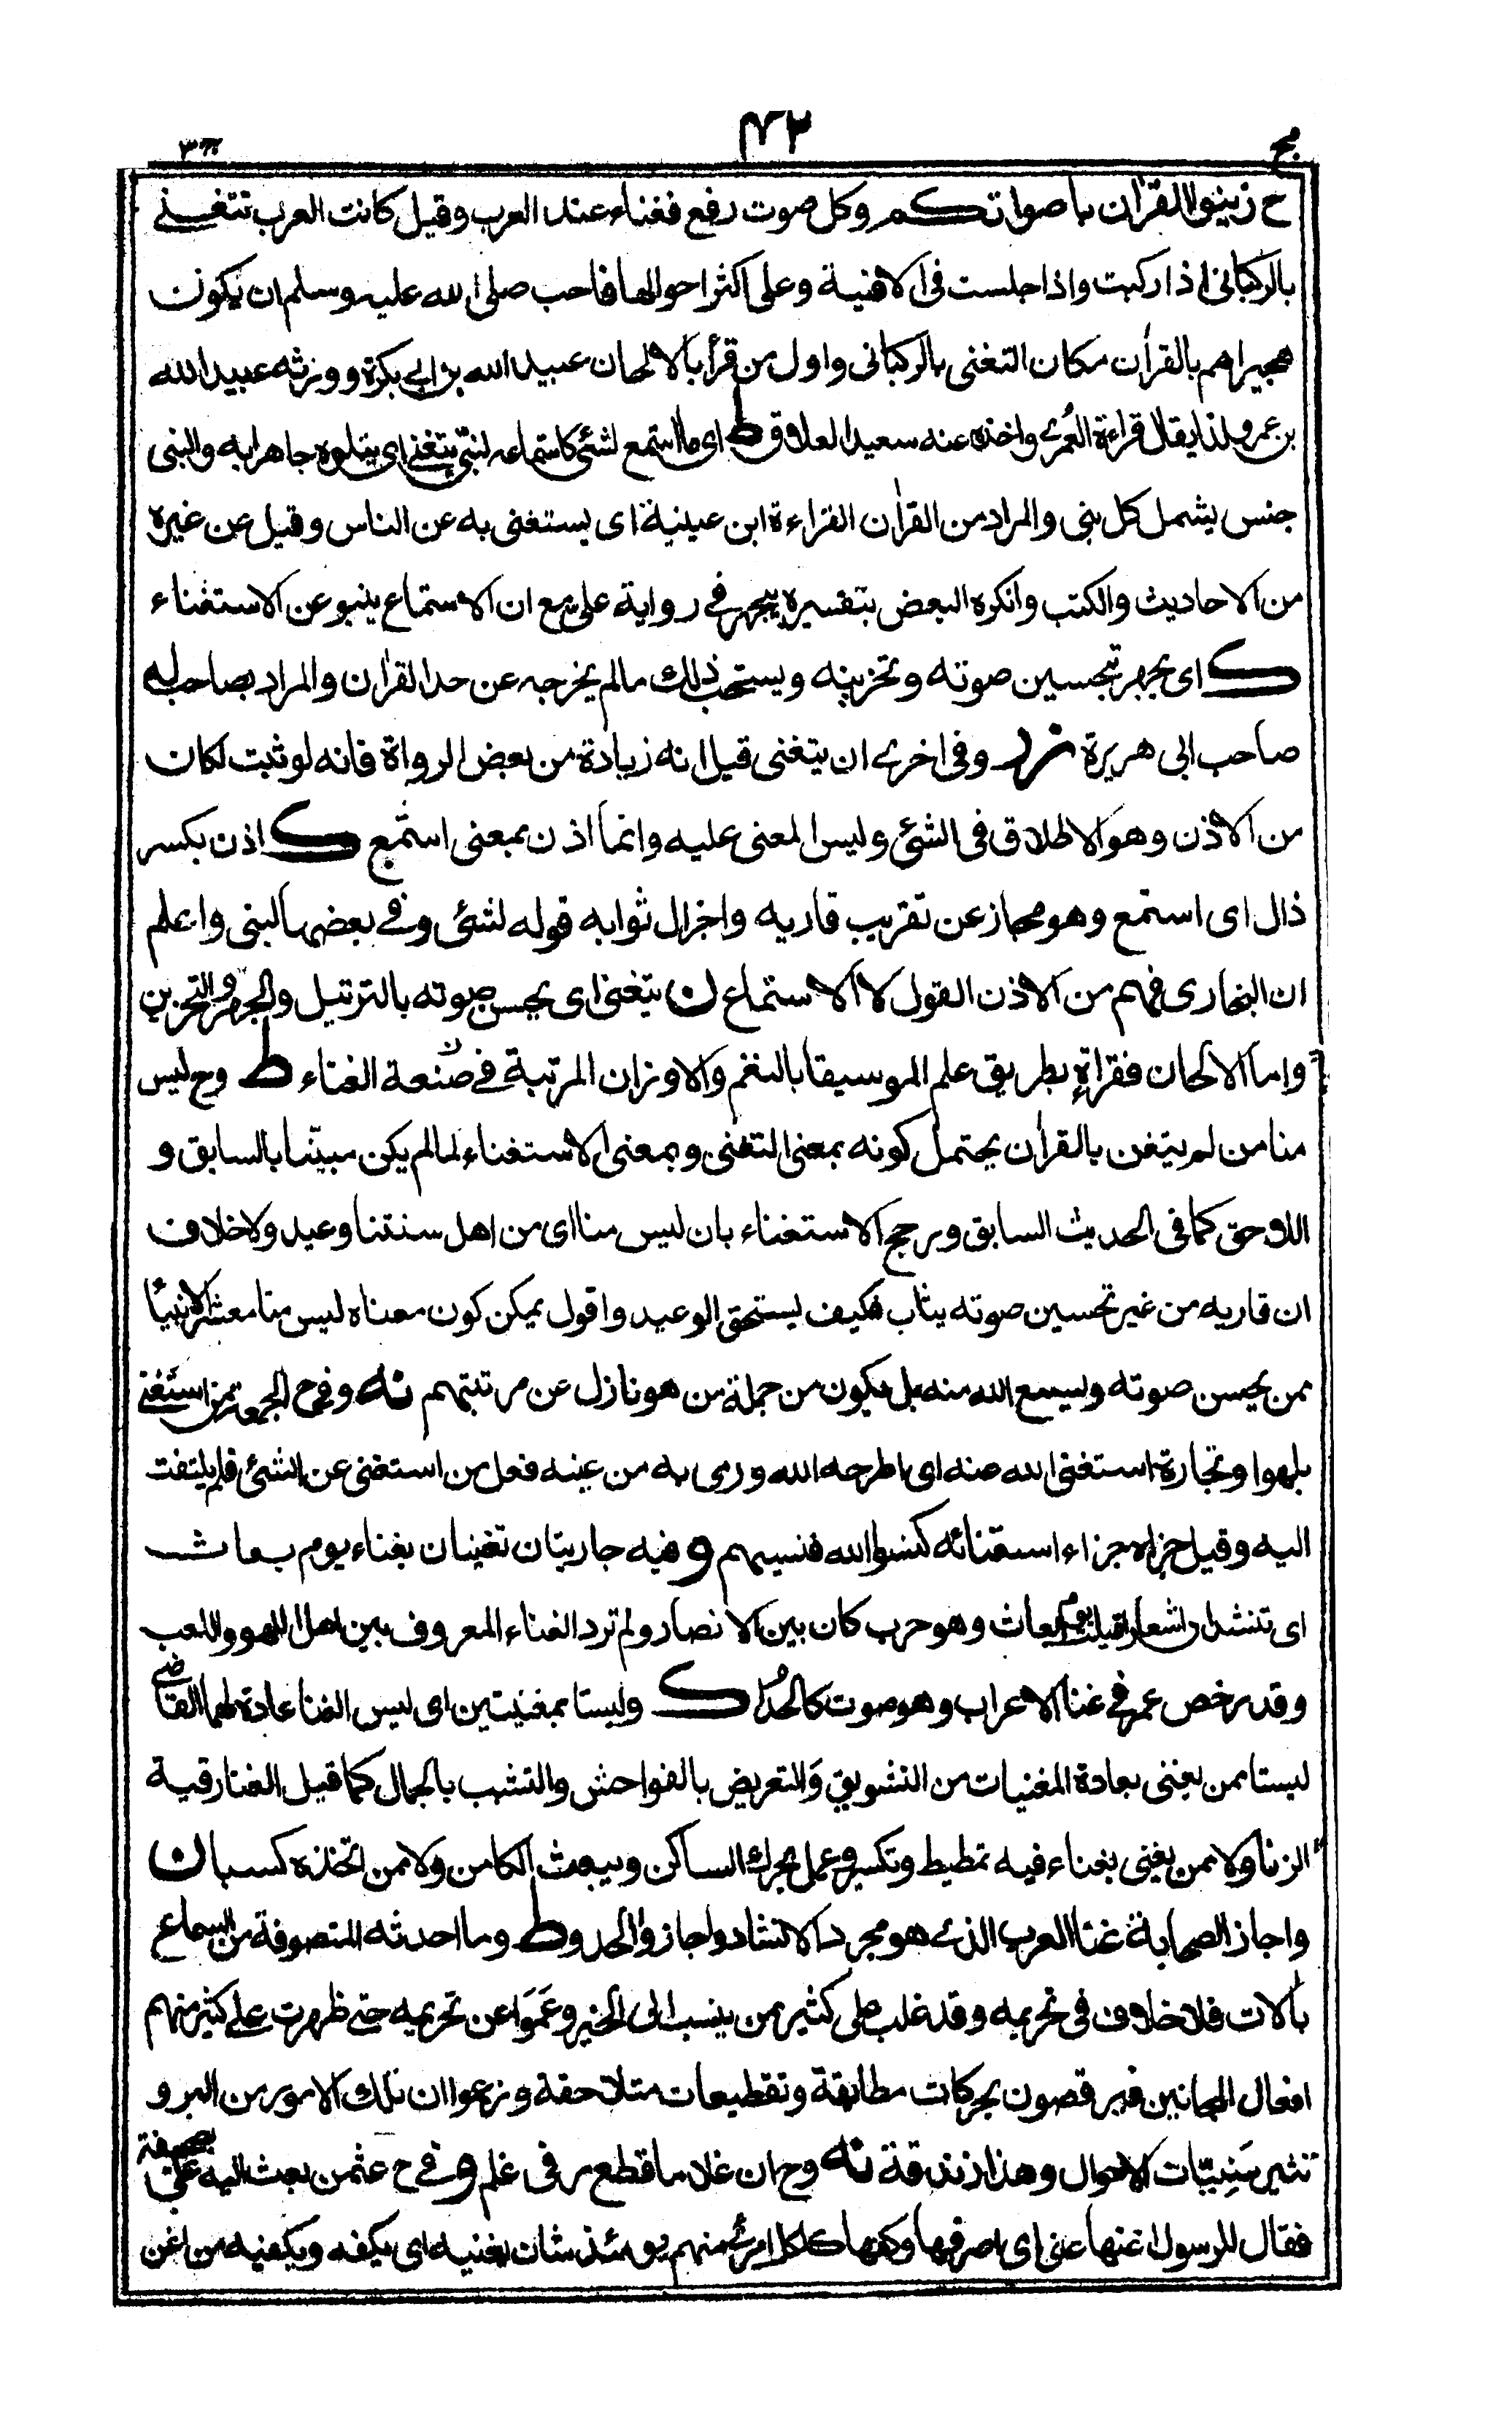 مج ٤٢ ج٣
ح زينوا القرآن بأصواتكم وكل صوت رفع فغناء عند العرب وقيل كانت العرب تتغنے
بالركبانى اذا ركبت واذا جلست فى الافنية وعلى اكثر احوالها فاحب صلى الله عليه وسلم ان يكون
هجيراهم بالقرأن مكان التغنى بالركبانى واول من قرأ بالالحان عبيد الله بن ابى بكرة وورثه عبيد الله
بن عمر ولذا يقال قراءة العُمرى واخذه عنه سعيد العلاق ط اى ما استمع لشئ كاستماعه لنبى يتغنے اى يتلوه جاهرا به والنبى
جنس يشمل كل نبى والمراد من القرأن القراءة ابن عيينة اى يستغنى به عن الناس وقيل عن غيره
من الاحاديث والكتب وانكره البعض بتفسيره بيجهر فے رواية على مع ان الاستماع ينبو عن الاستغناء
ك اى يجهر بتحسين صوته وتحزينه ويستحب ذلك مالم يخرجه عن حد القرأن والمراد بصاحب له
صاحب ابى هريرة زر وفى اخرے ان يتغنى قيل انه زيادة من بعض الرواة فانه لو ثبت لكان
من الاذن وهو الاطلاق فى الشئ وليس المعنى عليه وانما اذن بمعنى استمع ك اذن بكسر
ذال اى استمع وهو مجاز عن تقريب قاريه واجزال ثوابه قوله لشئ وفے بعضها لنبى واعلم
ان البخارى فهم من الاذن القول لا الاستماع ن يتغنى اى يحسن صوته بالترتيل والجهر والتحزين
واما الالحان فقراة بطريق علم الموسيقا بالنغم والاوزان المرتبة فے صنعة الغناء ط وح ليس
منا من لم يتغن بالقرأن يحتمل كونه بمعنى التغنى وبمعنى الاستغناء لما لم يكن مبينا بالسابق و
اللاحق كما فى الحديث السابق ويرجح الاستغناء بان ليس منا اى من اهل سنتنا وعيد ولا خلاف
ان قاريه من غير تحسين صوته يثاب فكيف يستحق الوعيد واقول يمكن كون معناه ليس منا معشر الانبياء
ممن يحسن صوته ويسمع الله منه بل يكون من جملة من هو نازل عن مرتبتهم نه وفى ح الجمعة من استغنے
بلهو او تجارة استغنى الله عنه اى اطرحه الله ورمى به من عينه فعل من استغنى عن الشئ فلم يلتفت
اليه وقيل جزاه جزاء استغنائه كنسوا الله فنسيهم و فيه جاريتان تغنيان بغناء يوم بعاث
اى تنشدان اشعارا قيلت يوم بعاث وهو حرب كان بين الانصار ولم ترد الغناء المعروف بين اهل اللهو واللعب
وقد رخص عمر فے غناء الاعراب وهو صوت كالحُداء ك وليستا بمغنيتين اى ليس الغنا عادة لهما القاضے
ليستا ممن يغنى بعادة المغنيات من التشويق والتعريض بالفواحش والتشبب بالجمال كما قيل الغنا رقية
الزنا ولا ممن يغنى بغناء فيه تمطيط وتكسير وعمل يحرك الساكن ويبعث الكامن ولا ممن اتخذه كسبا ن
واجاز الصحابة غنا العرب الذے هو مجرد الانشاد واجازوا الحدو ط وما احدثه المتصوفة من السماع
بالات فلا خلاف فى تحريمه وقد غلب على كثير ممن ينسب الى الخير وعَمَوا عن تحريمه حتے ظهرت علے كثير منهم
افعال المجانين فيرقصون بحركات مطابقة وتقطيعات متلاحقة وزعموا ان تلك الامور من البر و
تثير سَنِيّات الاحوال وهذا زندقة نه وح ان غلاما قطع فى غلم و فے ح عثمن بعث اليه على بصحيفة
فقال للرسول اغنها عنى اى اصرفها وكفها كلكل امرئ منهم يومئذ شان يغنيه اى يكفه ويكفيه من اغن